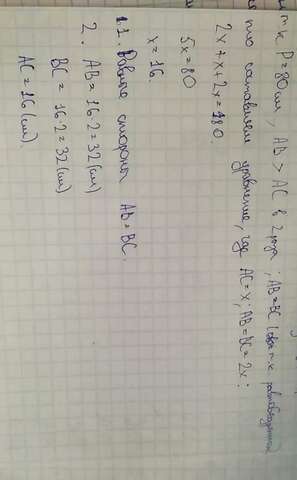 т.к P=80 см, AB > AC в 2 раза; AB=BC (св-я т.к равнобедренный
то составляем уравнение, где AC=x; AB=BC=2x:
2x+x+2x=180.
5x=80
x=16.
1. Равные стороны AB=BC.
2. AB=16·2=32 (см)
BC=16·2=32 (см)
AC=16 (см).